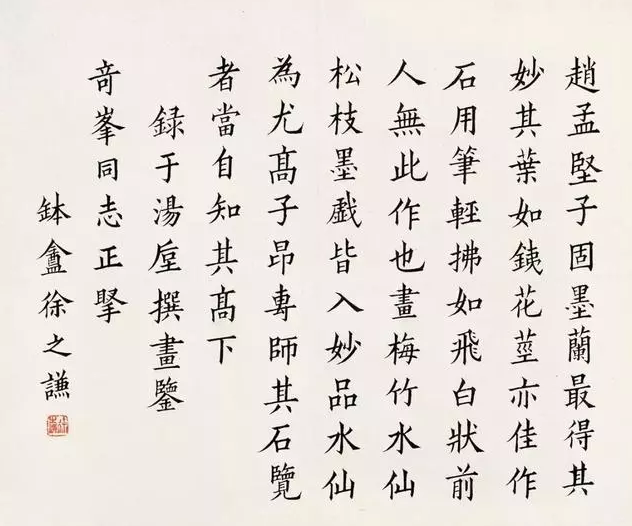 趙孟堅子固墨蘭最得其
妙其葉如銕花莖亦佳作
石用筆輕拂如飛白狀前
人無此作也畫梅竹水仙
松枝墨戲皆入妙品水仙
為尤髙子昂專師其石覽
者當自知其髙下
録于湯垕撰畫鑒
竒峯同志正掔
鉢盦徐之謙